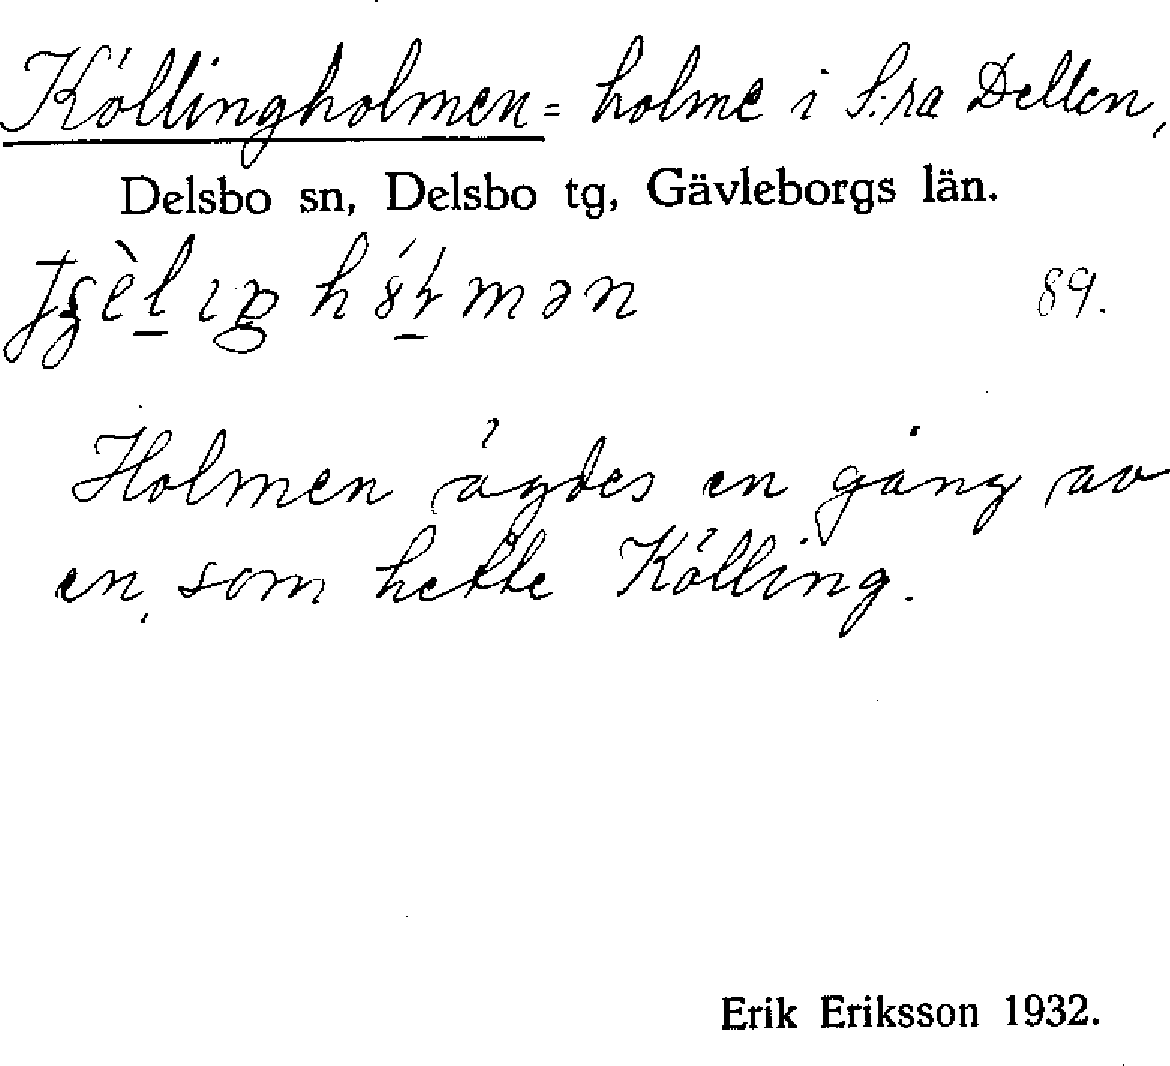 Köllingholmen = holme i S:ra Dellen,
Delsbo sn, Delsbo tg, Gävleborgs län.
89.
Holmen ägdes en gång av
en, som hette Kölling.
Erik Eriksson 1932.